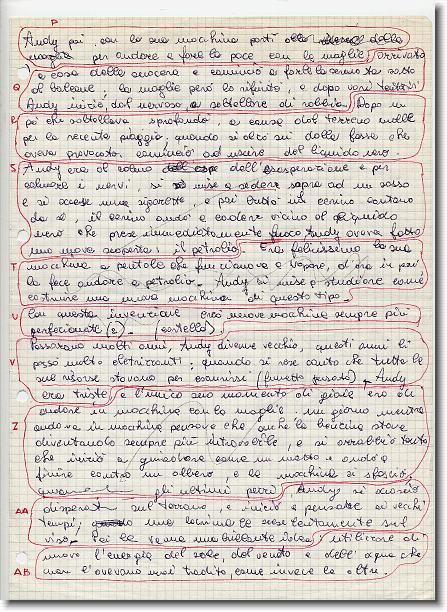 P
Andy poi con la sua macchina partì alla casa della
moglie per andare a fare la pace con la moglie, arrivato
a casa della suocera e cominciò a farle la serenata sotto
Q al balcone, la moglie però lo rifiutò, e dopo vari tentativi
Andy iniziò dal nervoso a saltellare di rabbia. Dopo un
R po' che saltellava sprofondò, a causa del terreno molle
per la recente pioggia, quando si alzò dalla fossa che
aveva provocato, cominciò ad uscire del liquido nero
S Andy era al colmo dell'esasperazione e per
calmare i nervi, si mise a sedere sopra ad un sasso
e si accese una sigaretta, e poi buttò un cerino lontano
da sé, il cerino andò a cadere vicino al liquido
nero che prese immediatamente fuoco Andy aveva fatto
una nuova scoperta: il petrolio. Era felicissimo la sua
T macchina a pentole che funzionava a vapore, d'ora in poi
la fece andare a petrolio. Andy si mise a studiare come
costruire una nuova macchina di questo tipo.
U Con questa invenzione creò nuove macchine sempre più
perfezionate (e) (cartello)
Passarono molti anni, Andy divenne vecchio, questi anni li
V passò molto elettrizzanti; quando si rese conto che tutte le
sue risorse stavano per esaurirsi (fumetto pensato). Andy
era triste, e l'unico suo momento di gioia era di
andare in macchina con la moglie. un giorno mentre
Z andava in macchina pensava che anche la benzina stava
diventando sempre più introvabile, e si arrabbiò tanto
che iniziò a guidare come un matto e andò a
finire contro un albero, e la macchina si sfasciò,
gli ultimi pezzi. Andy si sdraiò
AA disperato sul terreno, e iniziò a pensare ai vecchi
tempi, una lacrima le scese lentamente sul
viso. Poi le venne una brillante idea, utilizzare di
nuovo l'energia del sole del vento e dell'acqua che
AB non l'avevano mai tradito, come invece le altre